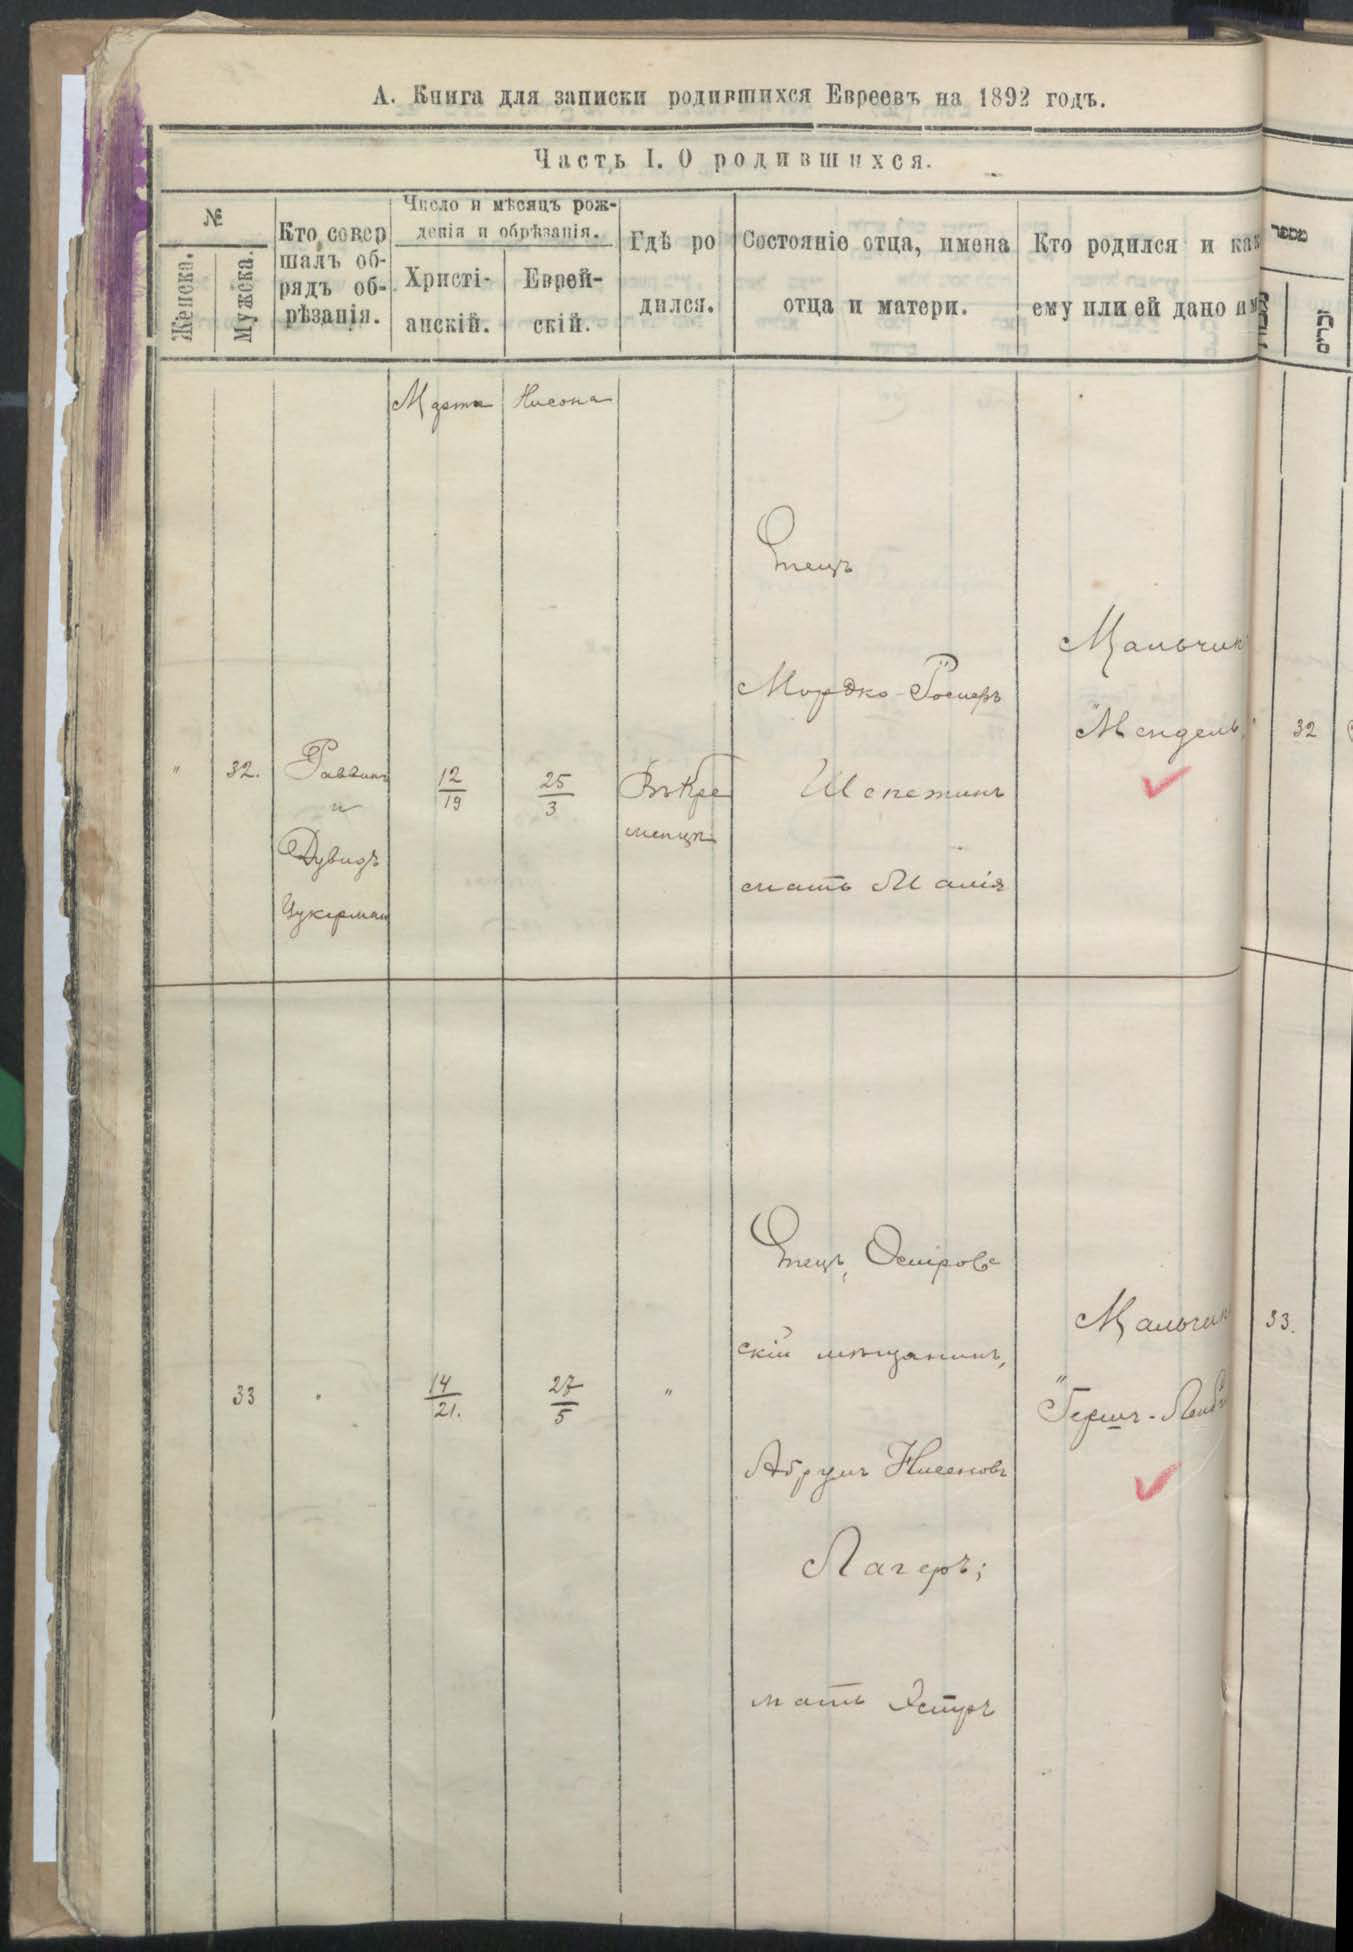 А. Книга для записки родившихся Евреевъ на 1892 годъ.
Часть I. О родившихся.
№
Женска.
Мужска.
Кто совер
шалъ об-
рядъ об-
рѣзанія.
Число и мѣсяцъ рож-
денія и обрѣзанія.
Христі-
анскій.
Еврей-
скій.
Гдѣ ро
дился.
Состояніе отца, имена
отца и матери.
Кто родился и как
ему или ей дано им
מספר
Марта
Нисона
"
32.
Раввинъ
и
Дувидъ
Цукерман
12
19
25
3
Въ Кре
менцѣ
Отецъ
Мордко
мать Малія
Мальчик
"Мендель"
32
33
14
21.
27
5
"
Отецъ, Остров
скій мѣщанинъ,
Абрумъ Нисеновъ
Лагеръ;
мать Эстеръ
Мальчик
"Гершъ-Лейб
33.